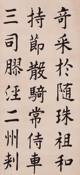 奇采於隨珠祖和
持節散騎常侍車
三司膠涇二州刺